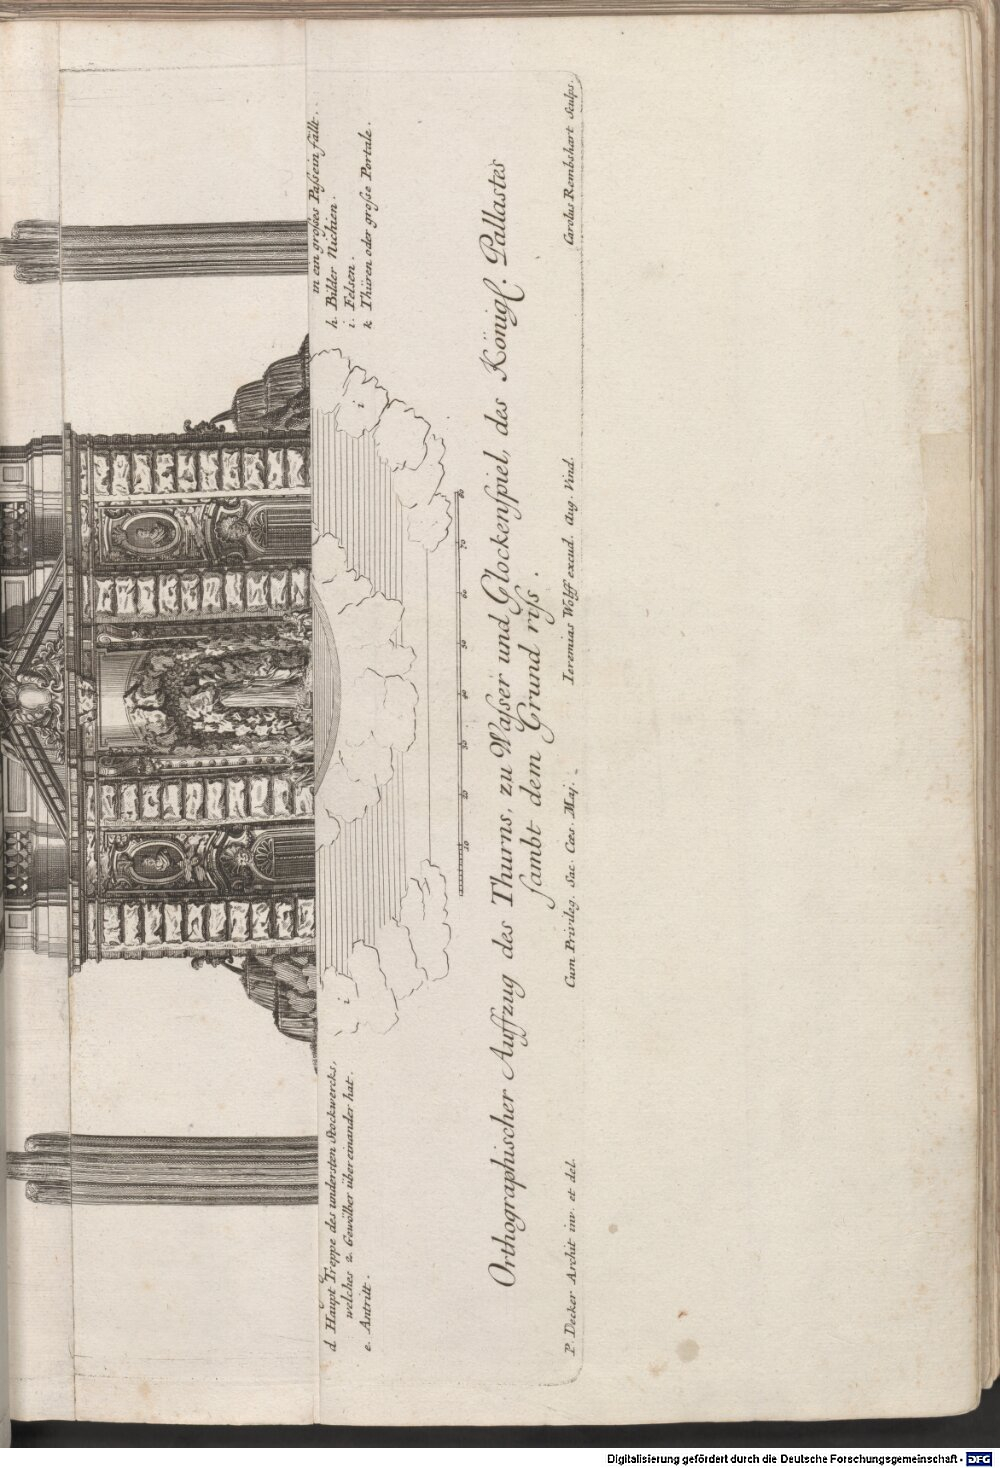 d Haupt Treppe des understen Stockwercks,
welches 2. Gewölber über einander hat.
e. Antritt.
in ein großes Paßein fällt.
h. Bilder Nichien.
i. Felsen.
k Thüren oder große Portale.
i
i
10 20 30 40 50 60 70 80
Orthographischer Auffzug des Thurns, zu Waßer und Glockenspiel, des Königl. Pallastes
sambt dem Grund riss.
P. Decker Archit inv. et del.
Cum Privileg. Sac. Cæs. Maj.
Ieremias Wolff excud. Aug. Vind.
Carolus Rembshart Sculps.
Digitalisierung gefördert durch die Deutsche Forschungsgemeinschaft - DFG